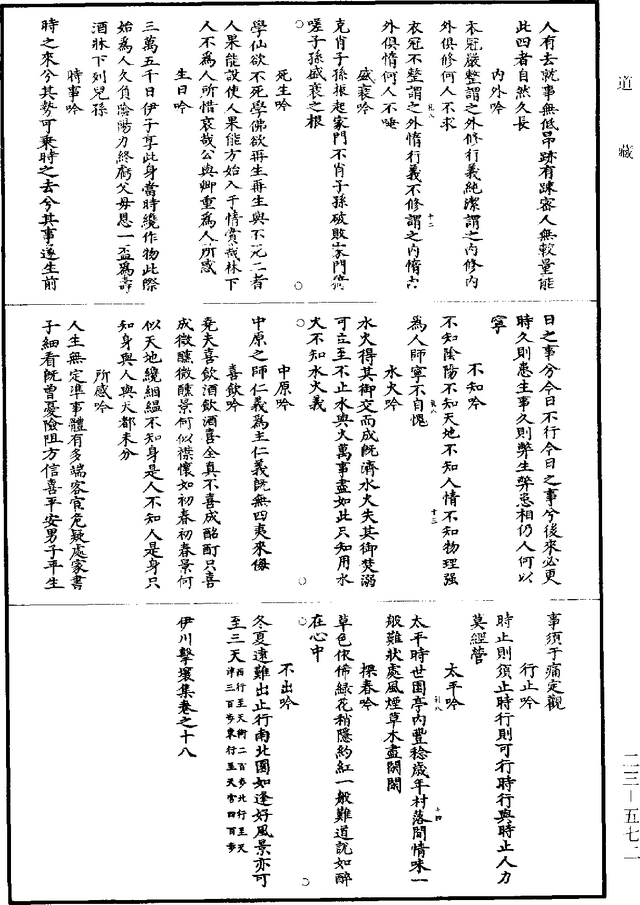 道藏
人有去就事無低昂跡有踈密人無較量能
此四者自然久長
內外吟
衣冠嚴整謂之外修行義純潔謂之內修內
外俱修何人不求
衣冠不整謂之外惰行義不修謂之內惰內
外俱惰何人不唾
盛衰吟
克肖子孫振起家門不肖子孫破敗家門猗
嗟子孫盛衰之根
死生吟
學仙欲不死學佛欲再生再生與不死二者
人果能設使人果能方始入于情賞哉林下
人不為人所惜哀哉公與卿重為人所惑
生日吟
三萬五千日伊予享此身當時纔作物此際
始為人久負陰陽力終虧父母恩一盃為壽
酒牀下列兒孫
時事吟
時之來兮其勢可乗時之去兮其事遂生前
日之事兮今日不行今日之事兮後來必更
時久則患生事久則弊生弊患相仍人何以
寧
不知吟
不知陰陽不知天地不知人情不知物理强
為人師寧不自愧
水火吟
水火得其御交而成既濟水火失其御焚溺
可立至不止水與火萬事盡如此只知用水
火不知水火義
中原吟
中原之師仁義為主仁義既無四夷來侮
喜飲吟
堯夫喜飲酒飲酒喜全真不喜成酩酊只喜
成微醺微醺景何似襟懷如初春初春景何
似天地纔絪縕不知身是人不知人是身只
知身與人與天都未分
所感吟
人生無定準事體有多端客宦危疑處家書
子細看既曽憂險阻方信喜平安男子平生
事須于痛定觀
行止吟
時止則須止時行則可行時行與時止人力
莫經營
太平吟
太平時世園亭內豐稔歲年村落間情味一
般難狀處風煙草木盡閑閑
探春吟
草色依俙緑花稍隱約紅一般難道說如醉
在心中
不出吟
冬夏遠難出止行南北園如逢好風景亦可
至三天西行至天街二百步北行至天津三百步東行至天宮四百步
伊川擊壤集卷之十八
二三—五七二